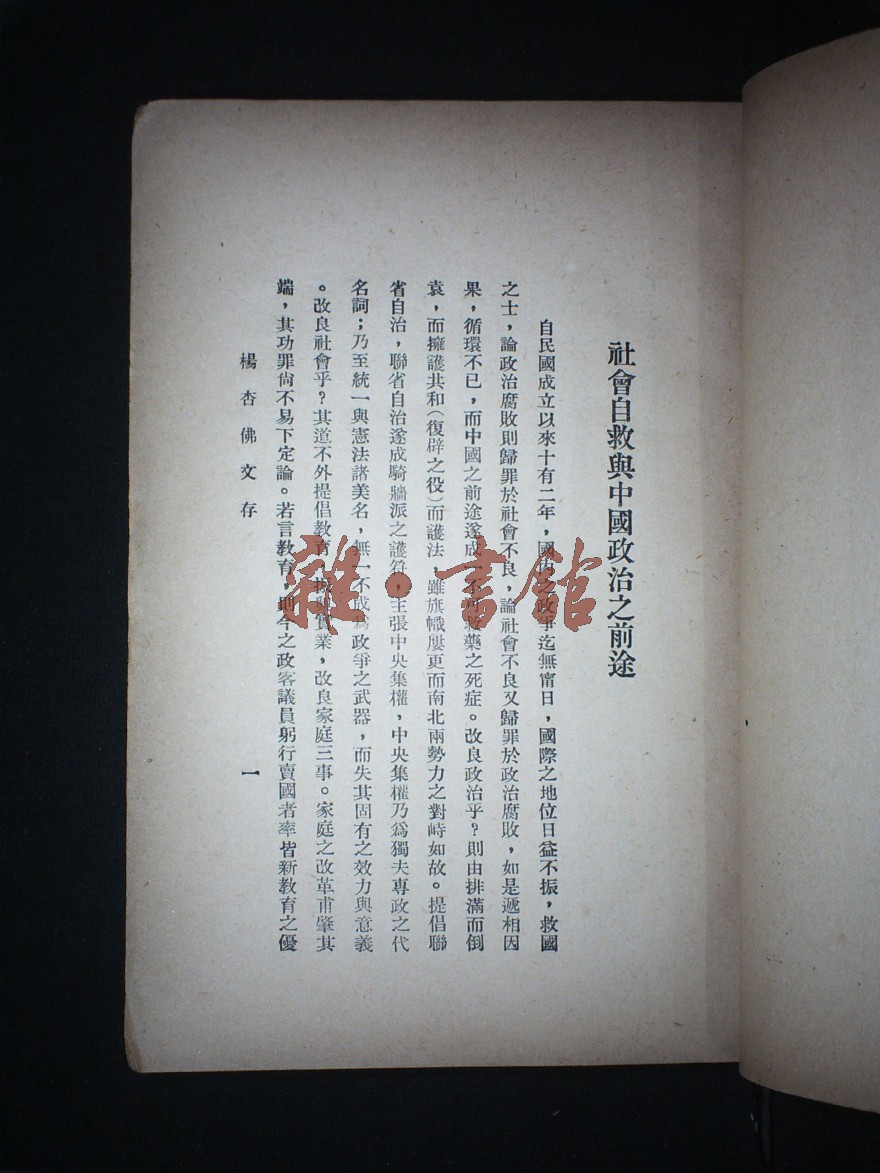 社會自救與中國政治之前途
自民國成立以來十有二年，國內之政爭迄無甯日，國際之地位日益不振，救國
之士，論政治腐敗則歸罪於社會不良，論社會不良又歸罪於政治腐敗，如是遞相因
果，循環不已，而中國之前途遂成一不可救藥之死症。改良政治乎？則由排滿而倒
袁，而擁護共和（復辟之役）而護法，雖旗幟屢更而南北兩勢力之對峙如故。提倡聯
省自治，聯省自治遂成騎牆派之護符，主張中央集權，中央集權乃爲獨夫專政之代
名詞；乃至統一與憲法諸美名，無一不成爲政爭之武器，而失其固有之效力與意義
。改良社會乎？其道不外提倡教育，振興實業，改良家庭三事。家庭之改革甫肇其
端，其功罪尙不易下定論。若言教育，則今之政客議員躬行賣國者率皆新教育之優
楊杏佛文存
一
雜·書館